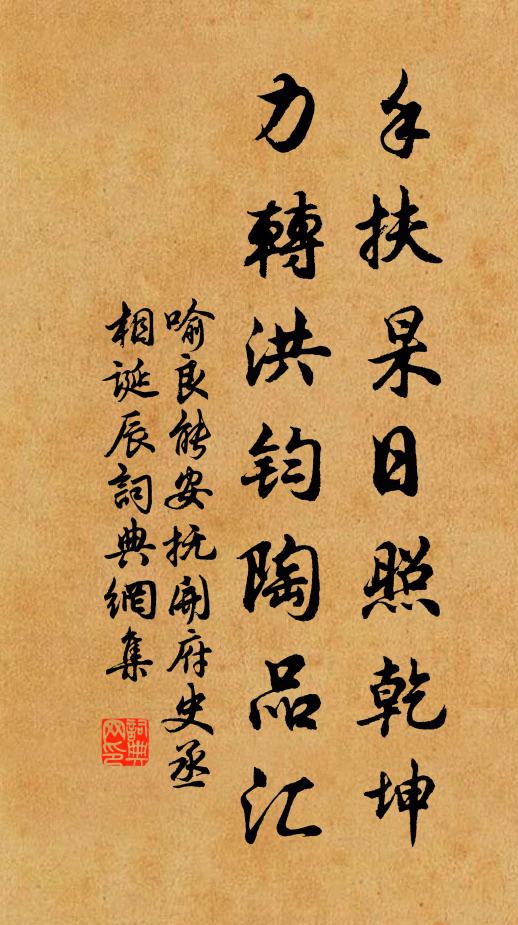 手扶杲日照乾坤
力轉洪鈞陶品汇
喻良能安抚開府史丞
相誕辰詞典網集
詞典
网印